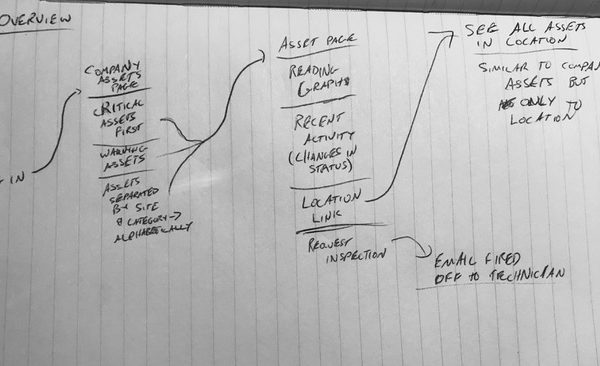 OVERVIEW
IN
COMPANY
ASSETS
PAGE
CRITICAL
ASSETS
FIRST
WARNING
ASSETS
ASSETS
SEPARATED
BY SITE
& CATEGORY →
ALPHABETICALLY
ASSET PAGE
READING
GRAPHS
RECENT
ACTIVITY
(CHANGES IN
STATUS)
LOCATION
LINK
REQUEST
INSPECTION
EMAIL FIRED
OFF TO TECHNICIAN
SEE ALL ASSETS
IN LOCATION
SIMILAR TO COMPA
ASSETS BUT
ONLY TO
LOCATION